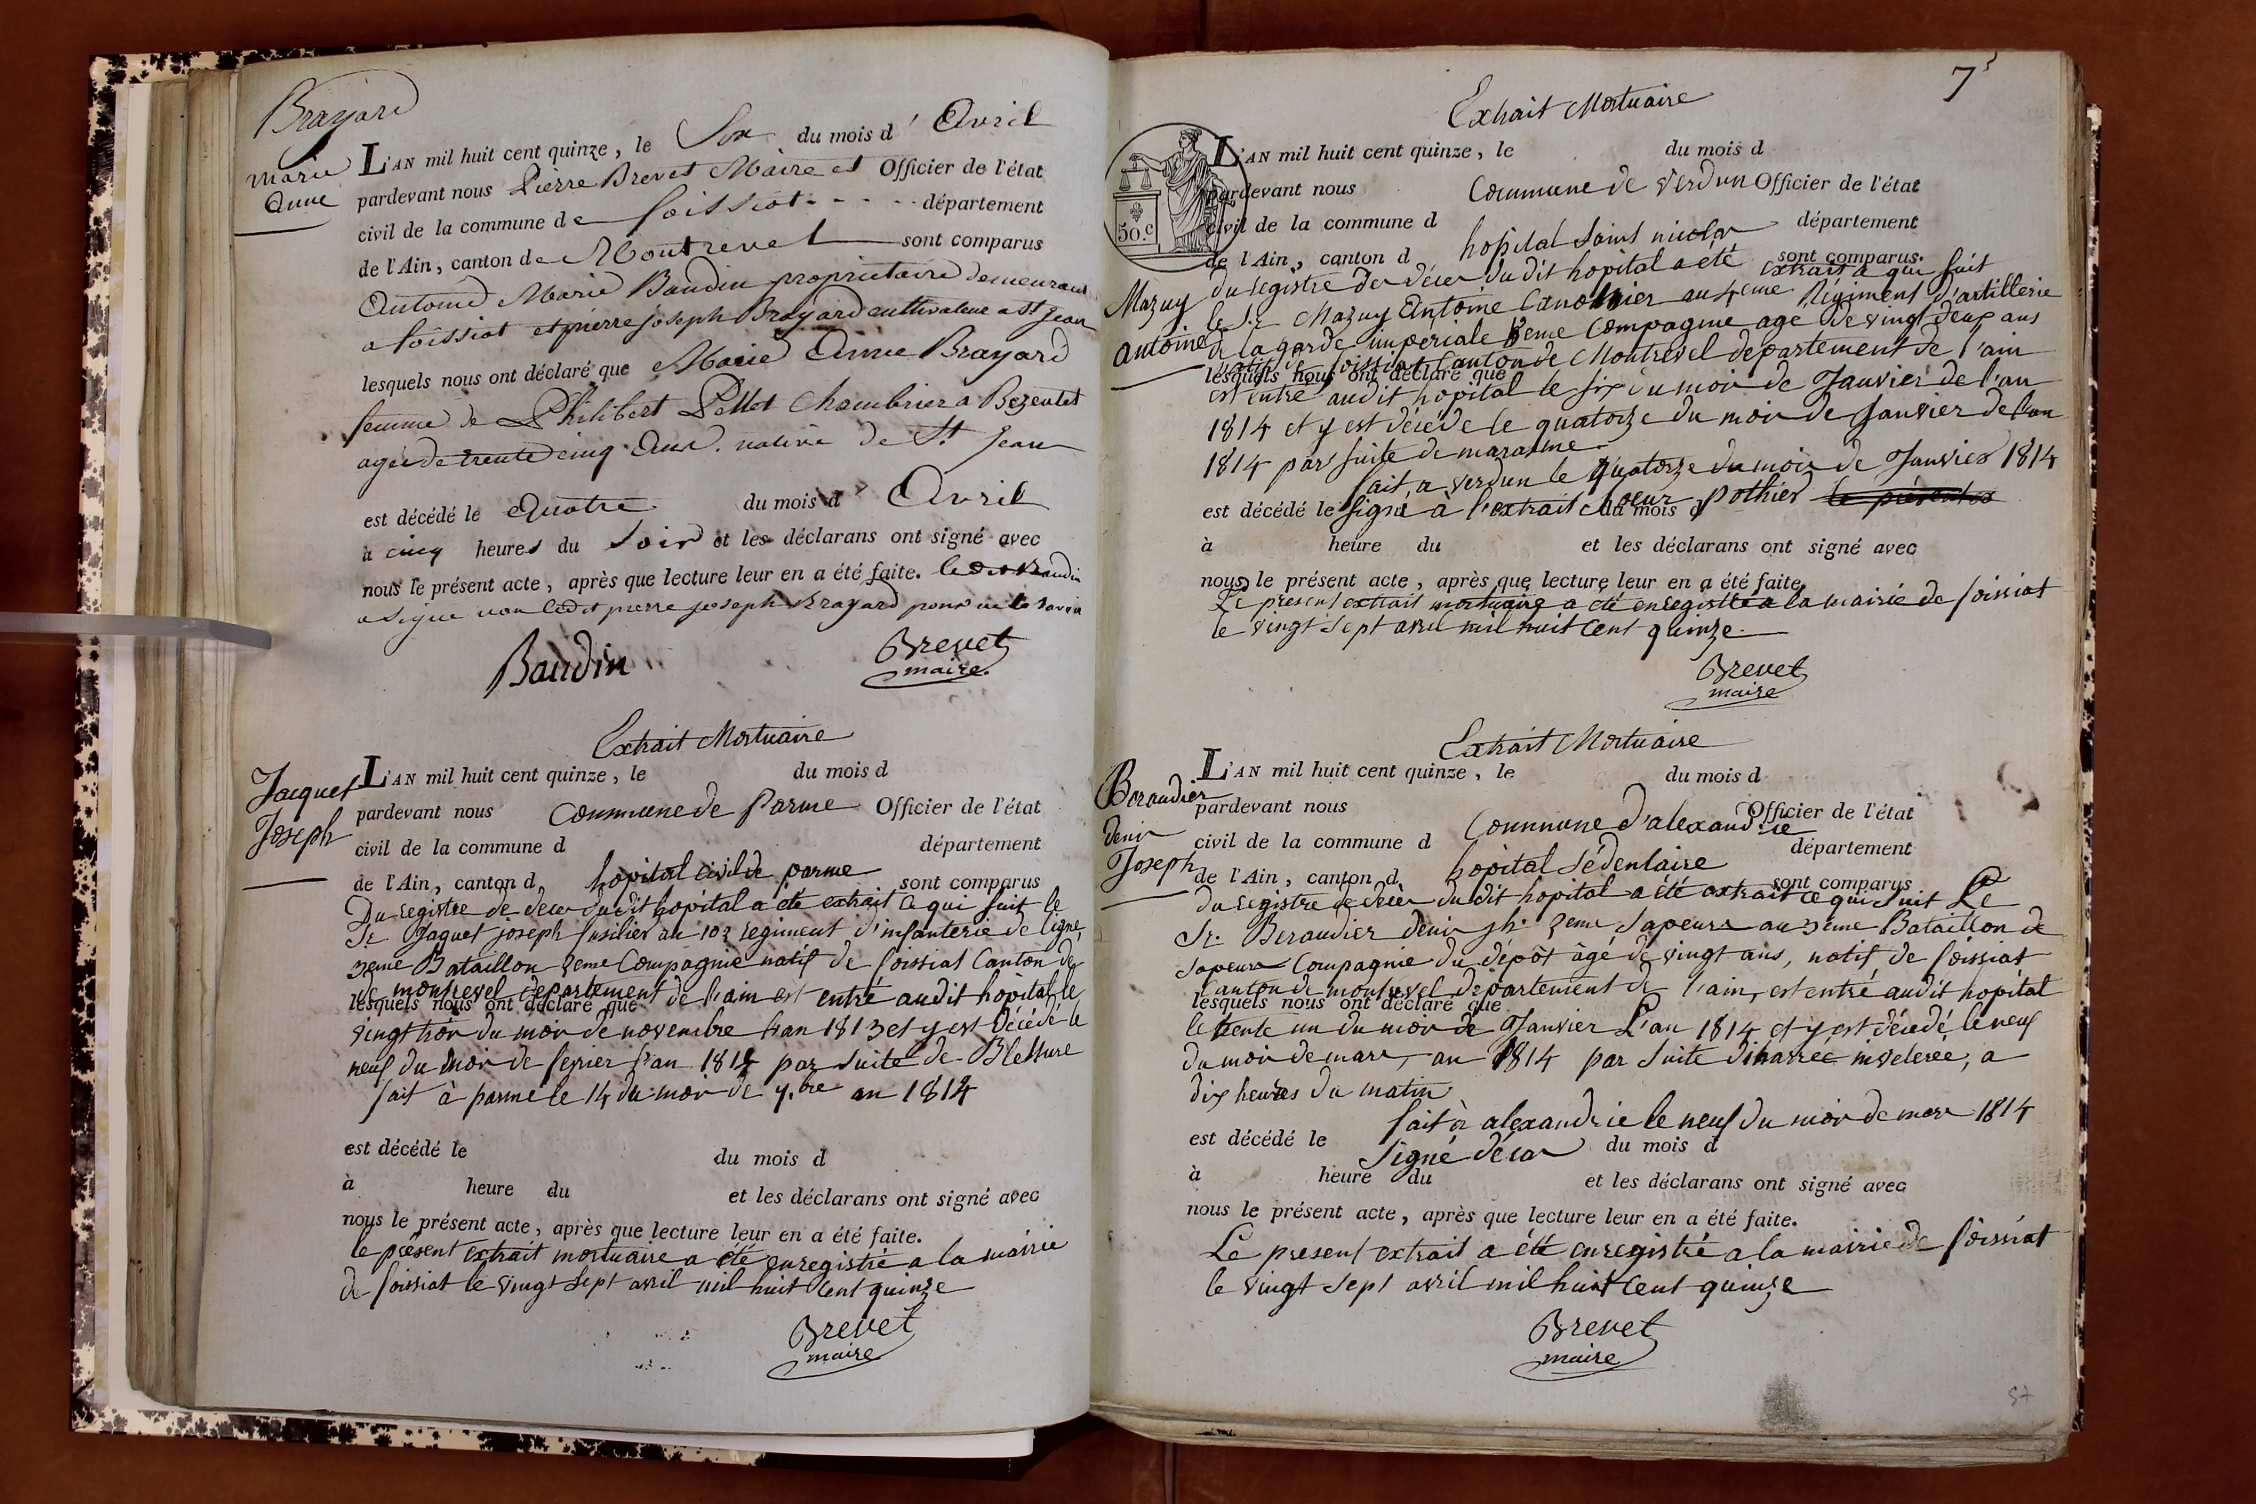 Brayard
Marie
Anne
L'AN mil huit cent quinze, le Six du mois d' Avril
pardevant nous Pierre Brevet Maire et Officier de l'état
civil de la commune de foissiat département
de l'Ain, canton de Montrevel sont comparus
Antoine Marie Baudin propriétaire demeurant
a foissiat et pierre joseph Brayard cultivateur a St jean
lesquels nous ont déclaré que Marie Anne Brayard
femme de Philibert Pellet Chambrier a Bezentet
agée de trente cinq Ans. native de St Jean
est décédé le Quatre du mois d' Avril
à cinq heures du Soir et les déclarans ont signé avec
nous le présent acte, après que lecture leur en a été faite. led. Baudin
a signé non ledit pierre joseph Brayard pour ne le savoir
Baudin
Brevet
maire.
Extrait Mortuaire
Jacquet
Joseph
L'AN mil huit cent quinze, le du mois d
pardevant nous Commune de Parme Officier de l'état
civil de la commune d département
de l'Ain, canton d hopital civil de parme sont comparus
Du registre de deces du dit hopital a été extrait ce qui suit le
Sr. Jaquet joseph fusilier au 102 regiment d'infanterie de ligne
3eme Bataillon 3eme Compagnie natif de foissiat Canton de
montrevel departement de l'ain est entré audit hôpital le
lesquels nous ont déclaré que
vingt trois du mois de novembre l'an 1813 et y est décédé le
neuf du mois de fevrier l'an 1814 par suite de Blessure
fait à parme le 14 du mois de 9.bre an 1814
est décédé le du mois d
à heure du et les déclarans ont signé avec
nous le présent acte, après que lecture leur en a été faite.
le présent extrait mortuaire a été enregistré a la mairie
de foissiat le vingt sept avril mil huit Cent quinze
Brevet
maire
7
Extrait Mortuaire
50.c
Mazuy
antoine
L'AN mil huit cent quinze, le du mois d
pardevant nous Commune de Verdun Officier de l'état
civil de la commune d département
de l'Ain, canton d hopital Saint nicolas sont comparus.
du registre des déces du dit hopital a été extrait ce qui suit
le Sr Mazuy Antoine Canonnier au 4eme Régiment d'artillerie
de la garde impériale Compagnie age de vingt deux ans
natif de foissiat Canton de Montrevel departement de l'ain
lesquels nous ont déclaré que
est entré audit hopital le six du mois de Janvier de l'an
1814 et y est décédé le quatorze du mois de Janvier de l'an
1814 par suite de marasme
fait a verdun le quatorze du mois de Janvier 1814
est décédé le signé à l'extrait choeur pothier le présent
du mois d
à heure du et les déclarans ont signé avec
nous le présent acte, après que lecture leur en a été faite.
Le present extrait mortuaire a été enregistré a la mairie de foissiat
le vingt sept avril mil huit Cent quinze.
Brevet
maire
Extrait Mortuaire
Beraudier
denis
Joseph
L'AN mil huit cent quinze, le du mois d
pardevant nous Officier de l'état
civil de la commune d Commune d'alexandrie département
de l'Ain, canton d hopital Sédentaire sont comparus
du registre de décès du dit hopital a été extrait ce qui suit Le
Sr. Beraudier denis jh. 2eme Sapeurs au 3eme Bataillon de
Sapeurs Compagnie du dépôt âgé de vingt ans, natif de foissiat
Canton de montrevel département de l'ain, est entré audit hopital
lesquels nous ont déclaré que
le trente un du mois de Janvier L'an 1814 et y est décédé le neuf
du mois de mars, an 1814 par suite diharrée inveterée, a
dix heures du matin
fait à alexandrie le neuf du mois de mars 1814
est décédé le signé décar du mois d
à heure du et les déclarans ont signé avec
nous le présent acte, après que lecture leur en a été faite.
Le present extrait a été enregistré a la mairie de foissiat
le vingt sept avril mil huit Cent quinze
Brevet
maire